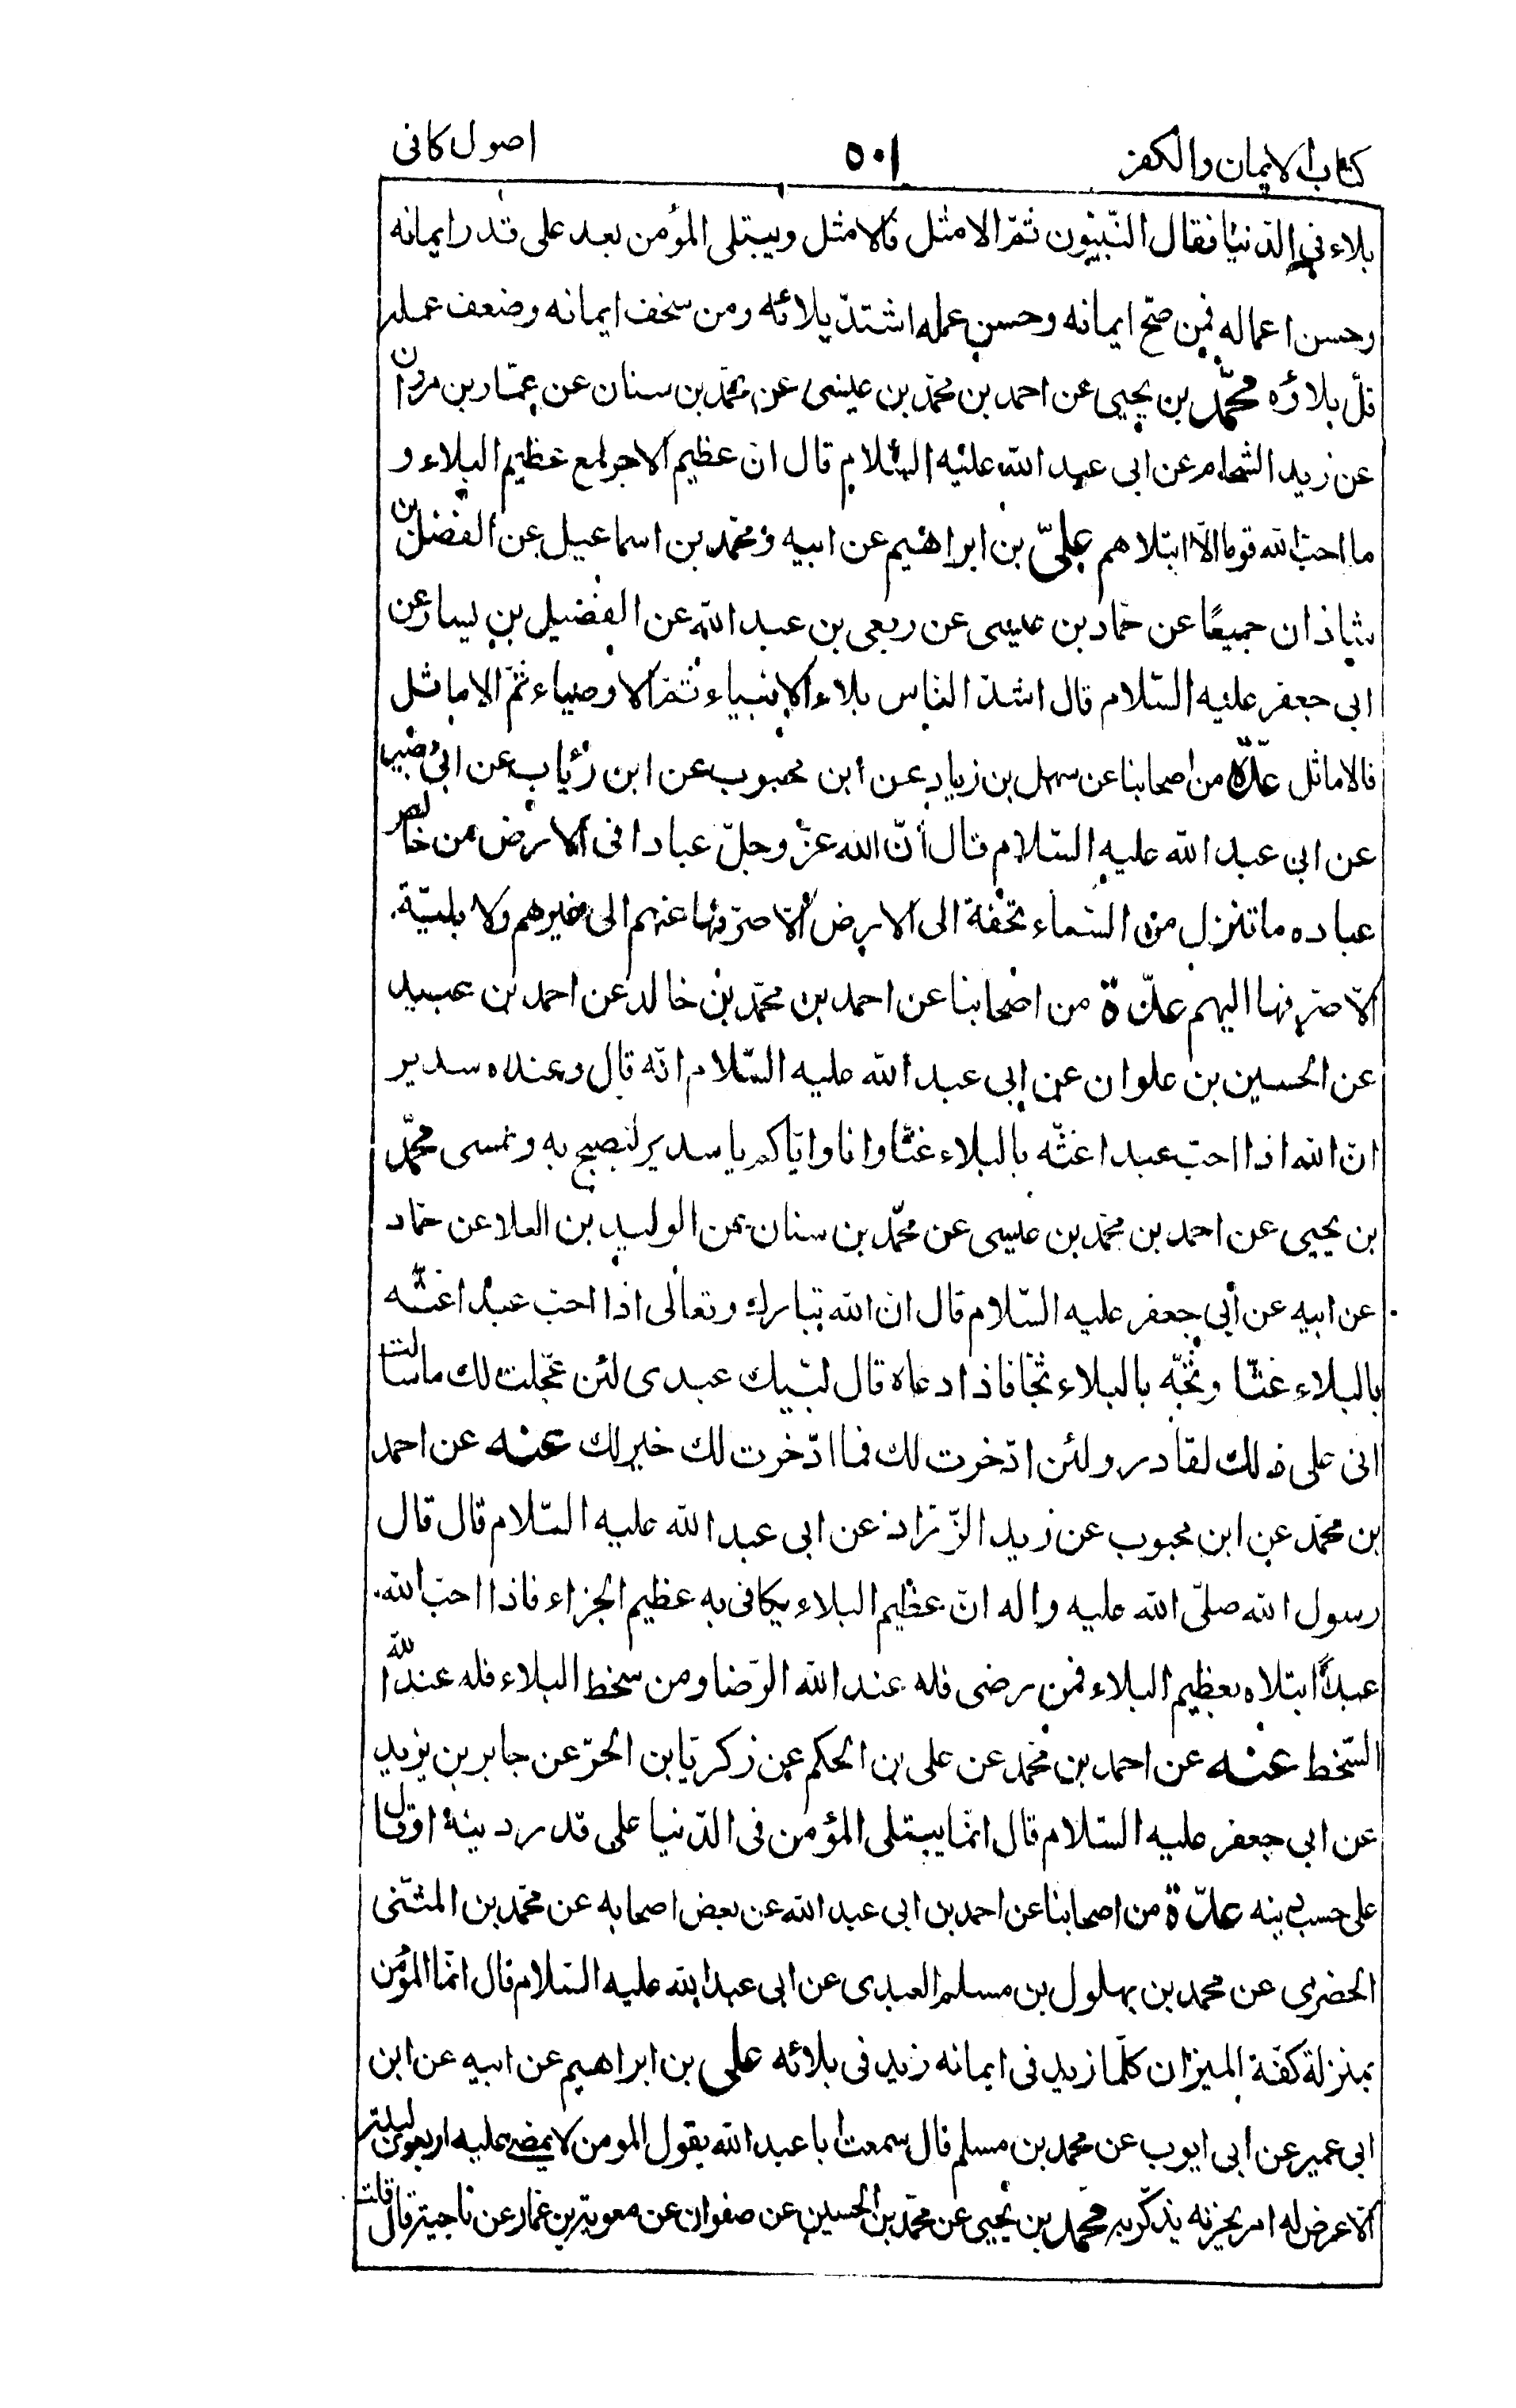 كتاب الايمان والكفر
٥٠١
اصول كافى
بلاء فى الدّنيا فقال النّبيّون ثمّ الامثل فالامثل ويبتلى المؤمن بعد على قدر ايمانه
وحسن اعماله فمن صحّ ايمانه وحسن عمله اشتدّ بلائه ومن سخف ايمانه وضعف عمله
قلّ بلاؤه محمّد بن يحيى عن احمد بن محمّد بن عيسى عن محمّد بن سنان عن عمّار بن مروان
عن زيد الشحام عن ابى عبد الله عليه السّلام قال ان عظيم الاجر لمع عظيم البلاء و
ما احبّ الله قوما الّا ابتلاهم علىّ بن ابراهيم عن ابيه ومحمّد بن اسماعيل عن الفضل بن
شاذان جميعًا عن حمّاد بن عيسى عن ربعى بن عبد الله عن الفضيل بن يسار عن
ابى جعفر عليه السّلام قال اشدّ الناس بلاء الانبياء ثمّ الاوصياء ثمّ الاماثل
فالاماثل عدّة من اصحابنا عن سهل بن زياد عن ابن محبوب عن ابن رئاب عن ابى بصير
عن ابى عبد الله عليه السّلام قال انّ الله عزّ وجلّ عبادا فى الارض من خالص
عباده ما تنزل من السّماء تحفة الى الارض الّا صرّفها عنهم الى غيرهم ولا بليّة
الّا صرفها اليهم عدّة من اصحابنا عن احمد بن محمّد بن خالد عن احمد بن عبيد
عن الحسين بن علوان عن ابى عبد الله عليه السّلام انّه قال وعنده سدير
انّ الله اذا احبّ عبدا غثّه بالبلاء غثّا وانا وايّاكم يا سدير لنصبح به ونمسى محمّد
بن يحيى عن احمد بن محمّد بن عيسى عن محمّد بن سنان عن الوليد بن العلا عن حمّاد
عن ابيه عن أبى جعفر عليه السّلام قال انّ الله تبارك وتعالى اذا احبّ عبدا غثّه
بالبلاء غثّا وثجّه بالبلاء ثجّا فاذا دعاه قال لبّيك عبدى لئن عجّلت لك ما سألت
انى على ذلك لقادر ولئن ادّخرت لك فما ادّخرت لك خير لك عنه عن احمد
بن محمّد عن ابن محبوب عن زيد الزّرّاد عن ابى عبد الله عليه السّلام قال قال
رسول الله صلّى الله عليه واله انّ عظيم البلاء يكافى به عظيم الجزاء فاذا احبّ الله
عبدًا ابتلاه بعظيم البلاء فمن رضى فله عند الله الرّضا ومن سخط البلاء فله عند الله
السّخط عنه عن احمد بن محمّد عن على بن الحكم عن زكريّا بن الحرّ عن جابر بن يزيد
عن ابى جعفر عليه السّلام قال انّما يبتلى المؤمن فى الدّنيا على قدر دينه او قال
على حسب دينه عدّة من اصحابنا عن احمد بن ابى عبد الله عن بعض اصحابه عن محمّد بن المثنّى
الحضرمى عن محمد بن بهلول بن مسلم العبدى عن ابى عبد الله عليه السّلام قال انّما المؤمن
بمنزلة كفّة الميزان كلّما زيد فى ايمانه زيد فى بلائه على بن ابراهيم عن ابيه عن ابن
ابى عمير عن ابى ايوب عن محمد بن مسلم قال سمعت ابا عبد الله يقول المومن لا يمضى عليه اربعون ليلة
الّا عرض له امر يحزنه يذكّر به محمد بن يحيى عن محمّد بن الحسين عن صفوان عن معوية بن عمّار عن ناجية قال قلت